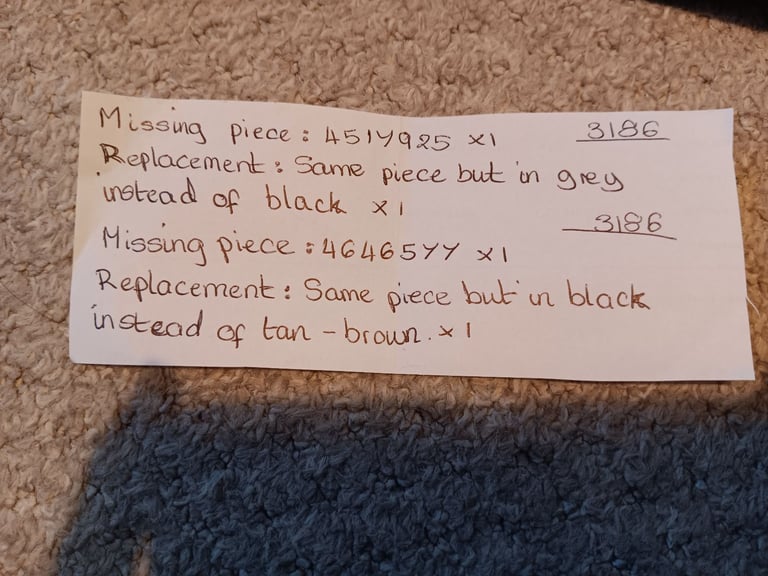 Missing piece: 4517925 x1 3186
Replacement: Same piece but in grey
instead of black x1
3186
Missing piece: 4646577 x1
Replacement: Same piece but in black
instead of tan-brown. x1